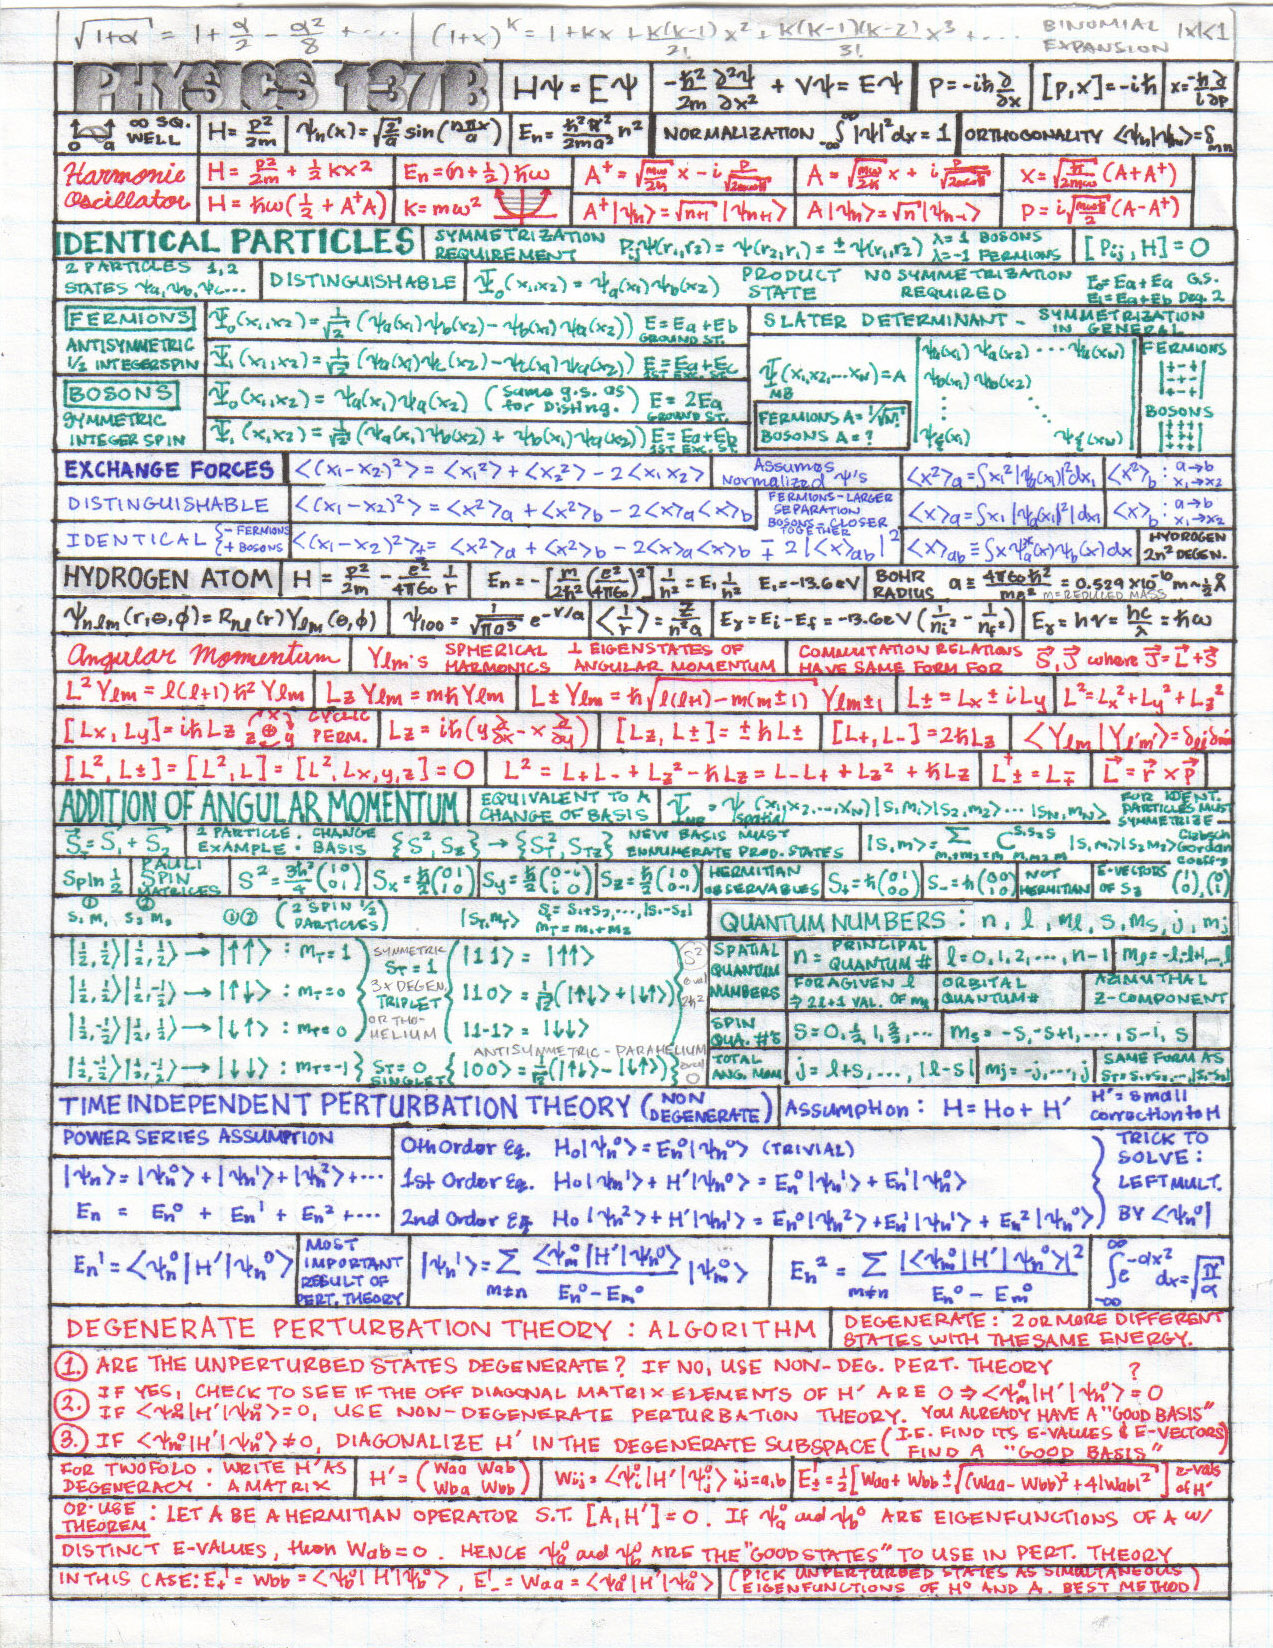 √1+α = 1 + α/2 − α²/8 + ... | (1+x)^k = 1 + kx + k(k-1)/2! x² + k(k-1)(k-2)/3! x³ + ... BINOMIAL EXPANSION |x|<1
PHYSICS 137B | Hψ = Eψ | -ħ²/2m ∂²ψ/∂x² + Vψ = Eψ | P = -iħ ∂/∂x | [p,x] = -iħ | x = -ħ/i ∂/∂p
∞ SQ. WELL | H = p²/2m | ψn(x) = √2/a sin(nπx/a) | En = ħ²π²/2ma² n² | NORMALIZATION ∫|ψ|²dx = 1 | ORTHOGONALITY <ψm|ψn> = δmn
Harmonic Oscillator
H = p²/2m + ½kx² | En = (n+½)ħω | A⁺ = √mω/2ħ x − i p/√2mωħ | A = √mω/2ħ x + i p/√2mωħ | x = √ħ/2mω (A+A⁺)
H = ħω(½ + A⁺A) | k = mω² | A⁺|ψn> = √n+1 |ψn+1> | A|ψn> = √n |ψn-1> | P = i√mωħ/2 (A-A⁺)
IDENTICAL PARTICLES | SYMMETRIZATION REQUIREMENT Pijψ(r1,r2) = ψ(r2,r1) = ±ψ(r1,r2) λ=1 BOSONS λ=-1 FERMIONS | [Pij, H] = 0
2 PARTICLES 1,2 STATES ψa,ψb,ψc... | DISTINGUISHABLE | Ψ0(x1,x2) = ψa(x1)ψb(x2) PRODUCT STATE NO SYMMETRIZATION REQUIRED E0=Ea+Ea G.S. E1=Ea+Eb Deg. 2
FERMIONS ANTISYMMETRIC ½ INTEGER SPIN
Ψ0(x1,x2) = 1/√2 (ψa(x1)ψb(x2) − ψb(x1)ψa(x2)) E = Ea+Eb GROUND ST.
Ψ1(x1,x2) = 1/√2 (ψa(x1)ψc(x2) − ψc(x1)ψa(x2)) E = Ea+Ec 1ST EXC. ST.
BOSONS SYMMETRIC INTEGER SPIN
Ψ0(x1,x2) = ψa(x1)ψa(x2) (Same g.s. as for Disting.) E = 2Ea GROUND ST.
Ψ1(x1,x2) = 1/√2 (ψa(x1)ψb(x2) + ψb(x1)ψa(x2)) E = Ea+Eb 1ST EXC. ST.
SLATER DETERMINANT - SYMMETRIZATION IN GENERAL
Ψ(x1,x2,...xN) = A | ψa(x1) ψa(x2) ... ψa(xN)
ψb(x1) ψb(x2)
ψξ(x1) ψξ(xN) |
FERMIONS A = 1/√N!
BOSONS A = ?
FERMIONS
|+-+|
|-+-|
|+-+|
BOSONS
|+++|
|+++|
|+++|
EXCHANGE FORCES | <(x1−x2)²> = <x1²> + <x2²> − 2<x1x2> | Assumes Normalized ψ's | <x²>a = ∫x1²|ψa(x1)|²dx1 | <x²>b : a→b x1→x2
DISTINGUISHABLE <(x1−x2)²> = <x²>a + <x²>b − 2<x>a<x>b | FERMIONS-LARGER SEPARATION BOSONS-CLOSER TOGETHER | <x>a = ∫x1|ψa(x1)|²dx1 | <x>b : a→b x1→x2
IDENTICAL {- FERMIONS + BOSONS <(x1−x2)²>± = <x²>a + <x²>b − 2<x>a<x>b ∓ 2|<x>ab|² | <x>ab ≡ ∫xψa*(x)ψb(x)dx | HYDROGEN 2n² DEGEN.
HYDROGEN ATOM | H = p²/2m − e²/4πε0 1/r | En = −[m/2ħ² (e²/4πε0)²] 1/n² = E1 1/n² E1 = -13.6eV | BOHR RADIUS a ≡ 4πε0ħ²/me² = 0.529 x10⁻¹⁰m ~ ½Å m=REDUCED MASS
ψnlm(r,θ,ϕ) = Rnl(r)Ylm(θ,ϕ) | ψ100 = 1/√πa³ e^-r/a | <1/r> = Z/n²a | Eγ = Ei−Ef = -13.6eV(1/ni² − 1/nf²) | Eγ = hν = hc/λ = ħω
Angular Momentum | Ylm's SPHERICAL HARMONICS ⊥ EIGENSTATES OF ANGULAR MOMENTUM | COMMUTATION RELATIONS HAVE SAME FORM FOR S⃗,J⃗ where J⃗=L⃗+S⃗
L²Ylm = l(l+1)ħ²Ylm | LzYlm = mħYlm | L±Ylm = ħ√l(l+1)−m(m±1) Ylm±1 | L± = Lx ± iLy | L² = Lx²+Ly²+Lz²
[Lx,Ly] = iħLz x y z CYCLIC PERM. | Lz = iħ(y∂/∂x − x∂/∂y) | [Lz,L±] = ±ħL± | [L+,L-] = 2ħLz | <Ylm|Yl'm'> = δllδmm
[L²,L±] = [L²,L] = [L²,Lx,y,z] = 0 | L² = L+L- + Lz² − ħLz = L-L+ + Lz² + ħLz | L±⁺ = L∓ | L⃗ = r⃗ × p⃗
ADDITION OF ANGULAR MOMENTUM | EQUIVALENT TO A CHANGE OF BASIS | Ψ = ψspatial(x1,x2,...,xN)|s1m1>|s2,m2>...|sN,mN> FOR IDENT. PARTICLES MUST SYMMETRIZE
S⃗T = S⃗1 + S⃗2 | 2 PARTICLE EXAMPLE : CHANGE BASIS {S²,Sz} → {ST²,STz} NEW BASIS MUST ENNUMERATE PROD. STATES | |s,m> = Σ m1+m2=m C s1s2s m1m2m |s1,m1>|s2m2> Clebsch Gordan coeff's
Spin ½ | PAULI SPIN MATRICES | S² = 3ħ²/4 (1 0 0 1) | Sx = ħ/2 (0 1 1 0) | Sy = ħ/2 (0 -i i 0) | Sz = ħ/2 (1 0 0 -1) | HERMITIAN OBSERVABLES | S+ = ħ(0 1 0 0) | S- = ħ(0 0 1 0) | NOT HERMITIAN | E-VECTORS OF Sz (1 0),(0 1)
① S1 M1 ② S2 M2 ①② (2 SPIN ½ PARTICLES) |ST,MT> ST = S1+S2,...,|S1-S2| MT = M1+M2
|½,½>|½,½> → |↑↑> : mT = 1
|½,½>|½,-½> → |↑↓> : mT = 0
|½,-½>|½,½> → |↓↑> : mT = 0
|½,-½>|½,-½> → |↓↓> : mT = -1
SYMMETRIC ST = 1 3X DEGEN. TRIPLET ORTHO-HELIUM
|1 1> = |↑↑>
|1 0> = 1/√2(|↑↓> + |↓↑>)
|1 -1> = |↓↓>
S² eval 2ħ²
ANTISYMMETRIC - PARAHELIUM
ST = 0 SINGLET {|00> = 1/√2(|↑↓> − |↓↑>)} eval 0
QUANTUM NUMBERS : n, l, ml, s, ms, j, mj
SPATIAL QUANTUM NUMBERS | n = PRINCIPAL QUANTUM # | l = 0,1,2,...,n-1 | ml = -l,-l+1,...,l
FOR A GIVEN l ⇒ 2l+1 VAL. OF ml | ORBITAL QUANTUM # | AZIMUTHAL Z-COMPONENT
SPIN QUA. #'S | S = 0,½,1,3/2,... | ms = -s,-s+1,...,s-1,s
TOTAL ANG. MOM | j = l+s,...,|l-s| | mj = -j,...,j | SAME FORM AS ST=S1+S2,...,|S1-S2|
TIME INDEPENDENT PERTURBATION THEORY (NON DEGENERATE) | Assumption : H = H0 + H' H' = small correction to H
POWER SERIES ASSUMPTION
|ψn> = |ψn⁰> + |ψn¹> + |ψn²> + ...
En = En⁰ + En¹ + En² + ...
0th Order Eq. H0|ψn⁰> = En⁰|ψn⁰> (TRIVIAL)
1st Order Eq. H0|ψn¹> + H'|ψn⁰> = En⁰|ψn¹> + En¹|ψn⁰>
2nd Order Eq H0|ψn²> + H'|ψn¹> = En⁰|ψn²> + En¹|ψn¹> + En²|ψn⁰>
TRICK TO SOLVE : LEFT MULT. BY <ψn⁰|
En¹ = <ψn⁰|H'|ψn⁰> | MOST IMPORTANT RESULT OF PERT. THEORY | |ψn¹> = Σ m≠n <ψm⁰|H'|ψn⁰>/En⁰−Em⁰ |ψm⁰> | En² = Σ m≠n |<ψm⁰|H'|ψn⁰>|²/En⁰−Em⁰ | ∫e^-αx² dx = √π/α
DEGENERATE PERTURBATION THEORY : ALGORITHM | DEGENERATE: 2 OR MORE DIFFERENT STATES WITH THE SAME ENERGY.
1. ARE THE UNPERTURBED STATES DEGENERATE? IF NO, USE NON-DEG. PERT. THEORY
2. IF YES, CHECK TO SEE IF THE OFF DIAGONAL MATRIX ELEMENTS OF H' ARE 0 ⇒ <ψm⁰|H'|ψn⁰> ?= 0
IF <ψm⁰|H'|ψn⁰> = 0, USE NON-DEGENERATE PERTURBATION THEORY. YOU ALREADY HAVE A "GOOD BASIS"
3. IF <ψm⁰|H'|ψn⁰> ≠ 0, DIAGONALIZE H' IN THE DEGENERATE SUBSPACE (I.E. FIND ITS E-VALUES & E-VECTORS) FIND A "GOOD BASIS"
FOR TWOFOLD DEGENERACY : WRITE H' AS A MATRIX | H' = (Waa Wab Wba Wbb) | Wij = <ψi⁰|H'|ψj⁰> i,j=a,b | E±¹ = ½[Waa + Wbb ± √(Waa−Wbb)² + 4|Wab|²] e-vals of H'
OR USE THEOREM : LET A BE A HERMITIAN OPERATOR S.T. [A,H'] = 0. IF ψa⁰ and ψb⁰ ARE EIGENFUNCTIONS OF A W/
DISTINCT E-VALUES, then Wab = 0. HENCE ψa⁰ and ψb⁰ ARE THE "GOOD STATES" TO USE IN PERT. THEORY
IN THIS CASE: E+¹ = Wbb = <ψb⁰|H'|ψb⁰>, E-¹ = Waa = <ψa⁰|H'|ψa⁰> | (PICK UNPERTURBED STATES AS SIMULTANEOUS EIGENFUNCTIONS OF H⁰ AND A. BEST METHOD)